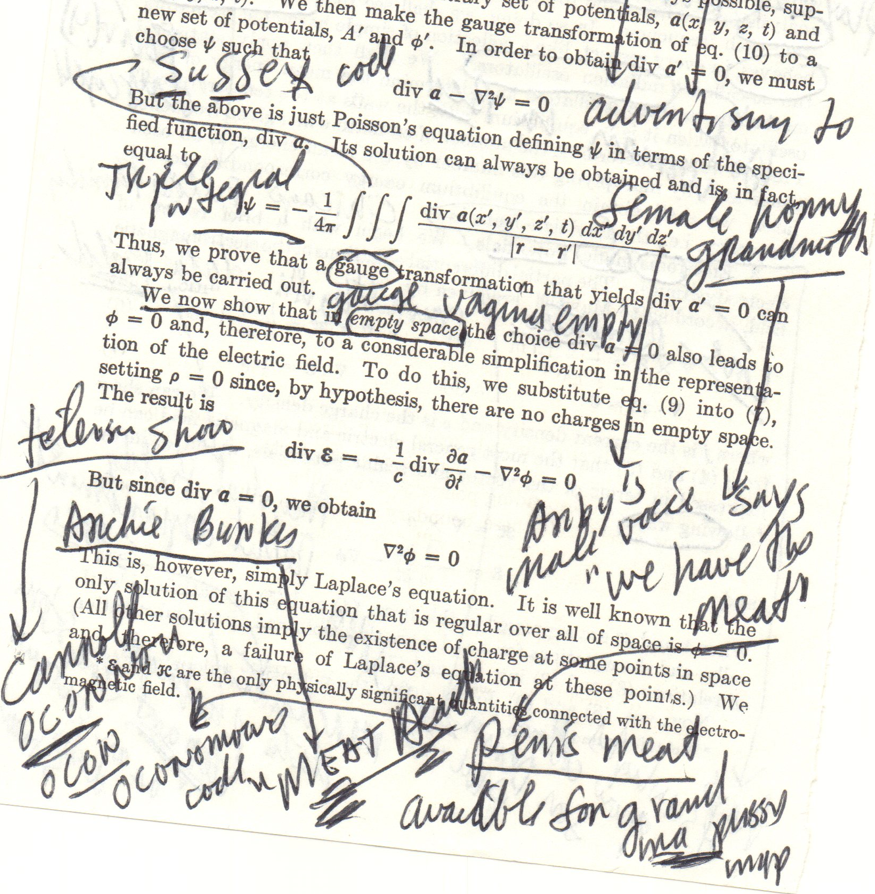 set of potentials, a(x, y, z, t) and
possible, sup-
We then make the gauge transformation of eq. (10) to a
new set of potentials, A′ and ϕ′. In order to obtain div a′ = 0, we must
choose ψ such that
Sussex code
div a − ∇²ψ = 0
adventising to
But the above is just Poisson's equation defining ψ in terms of the speci-
fied function, div a. Its solution can always be obtained and is, in fact,
equal to
Triple
integral
female horny
grandmoth
ψ = − 1/4π ∫∫∫ div a(x′, y′, z′, t) dx′ dy′ dz′ / |r − r′|
Thus, we prove that a gauge transformation that yields div a′ = 0 can
always be carried out.
gauge vagina empty
We now show that in empty space the choice div a = 0 also leads to
ϕ = 0 and, therefore, to a considerable simplification in the representa-
tion of the electric field. To do this, we substitute eq. (9) into (7),
setting ρ = 0 since, by hypothesis, there are no charges in empty space.
The result is
show
div ε = − 1/c div ∂a/∂t − ∇²ϕ = 0
But since div a = 0, we obtain
Archie Bunker
∇²ϕ = 0
voice says
male
"we have the
meat"
This is, however, simply Laplace's equation. It is well known that the
only solution of this equation that is regular over all of space is ϕ = 0.
(All other solutions imply the existence of charge at some points in space
and, therefore, a failure of Laplace's equation at these points.) We
* ε and ℋ are the only physically significant quantities connected with the electro-
magnetic field.
Carroll
OConnor
OCON
OConomowo
code
MEAT Head
penis meat
availble for grand
ma pussy